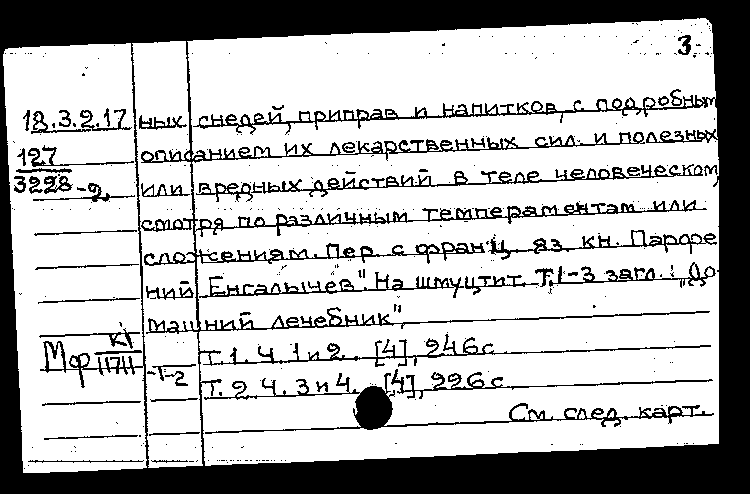 3.
18.3.2.17 ных снедей, приправ и напитков, с подробным
127 описанием их лекарственных сил и полезных
3228-2, или вредных действий в теле человеческом,
смотря по различным темпераментам или
сложениям. Пер. с франц. яз. кн. Парфе
ний Енгалычев". На шмуцтит. Т.1-3 загл.: „До
машний лечебник",
Мф К1 11711 -1-2 Т. 1. Ч. 1 и 2. [4], 246 с
Т. 2. Ч. 3 и 4. [4], 226 с
См. след. карт.